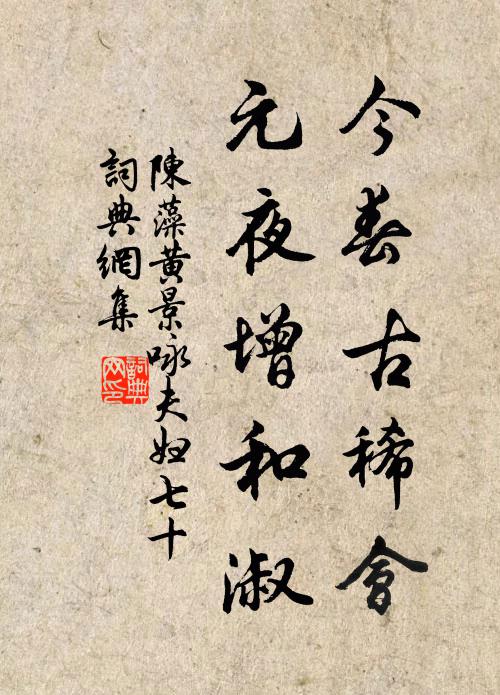 今春古稀會
元夜增和淑
陳藻黃景咏夫妇七十
詞典網集
詞典
网印